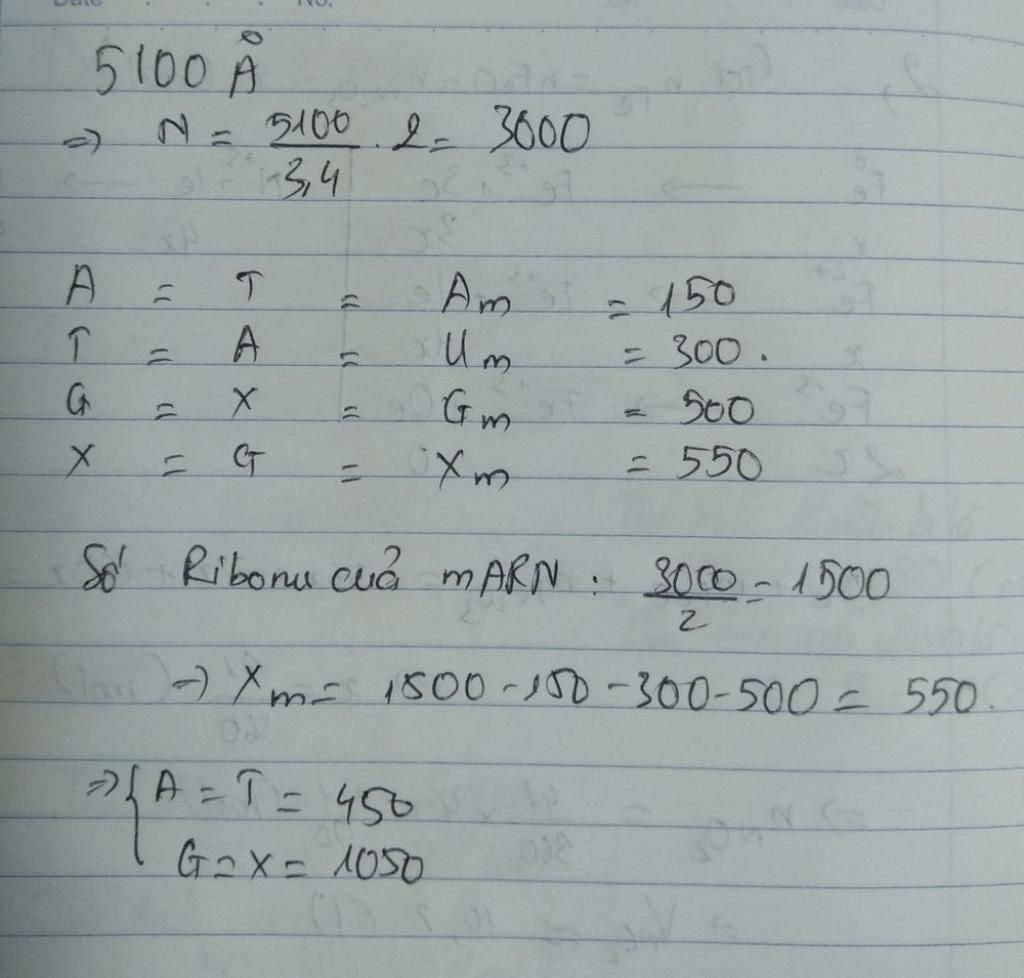 Date No.
5100 Å
=> N = 5100/3,4 . 2 = 3000
A = T = Am = 150
T = A = Um = 300.
G = X = Gm = 500
X = G = Xm = 550
Số Ribonu cuả mARN : 3000/2 = 1500
=> Xm = 1500 - 150 - 300 - 500 = 550.
=> { A = T = 450
G = X = 1050